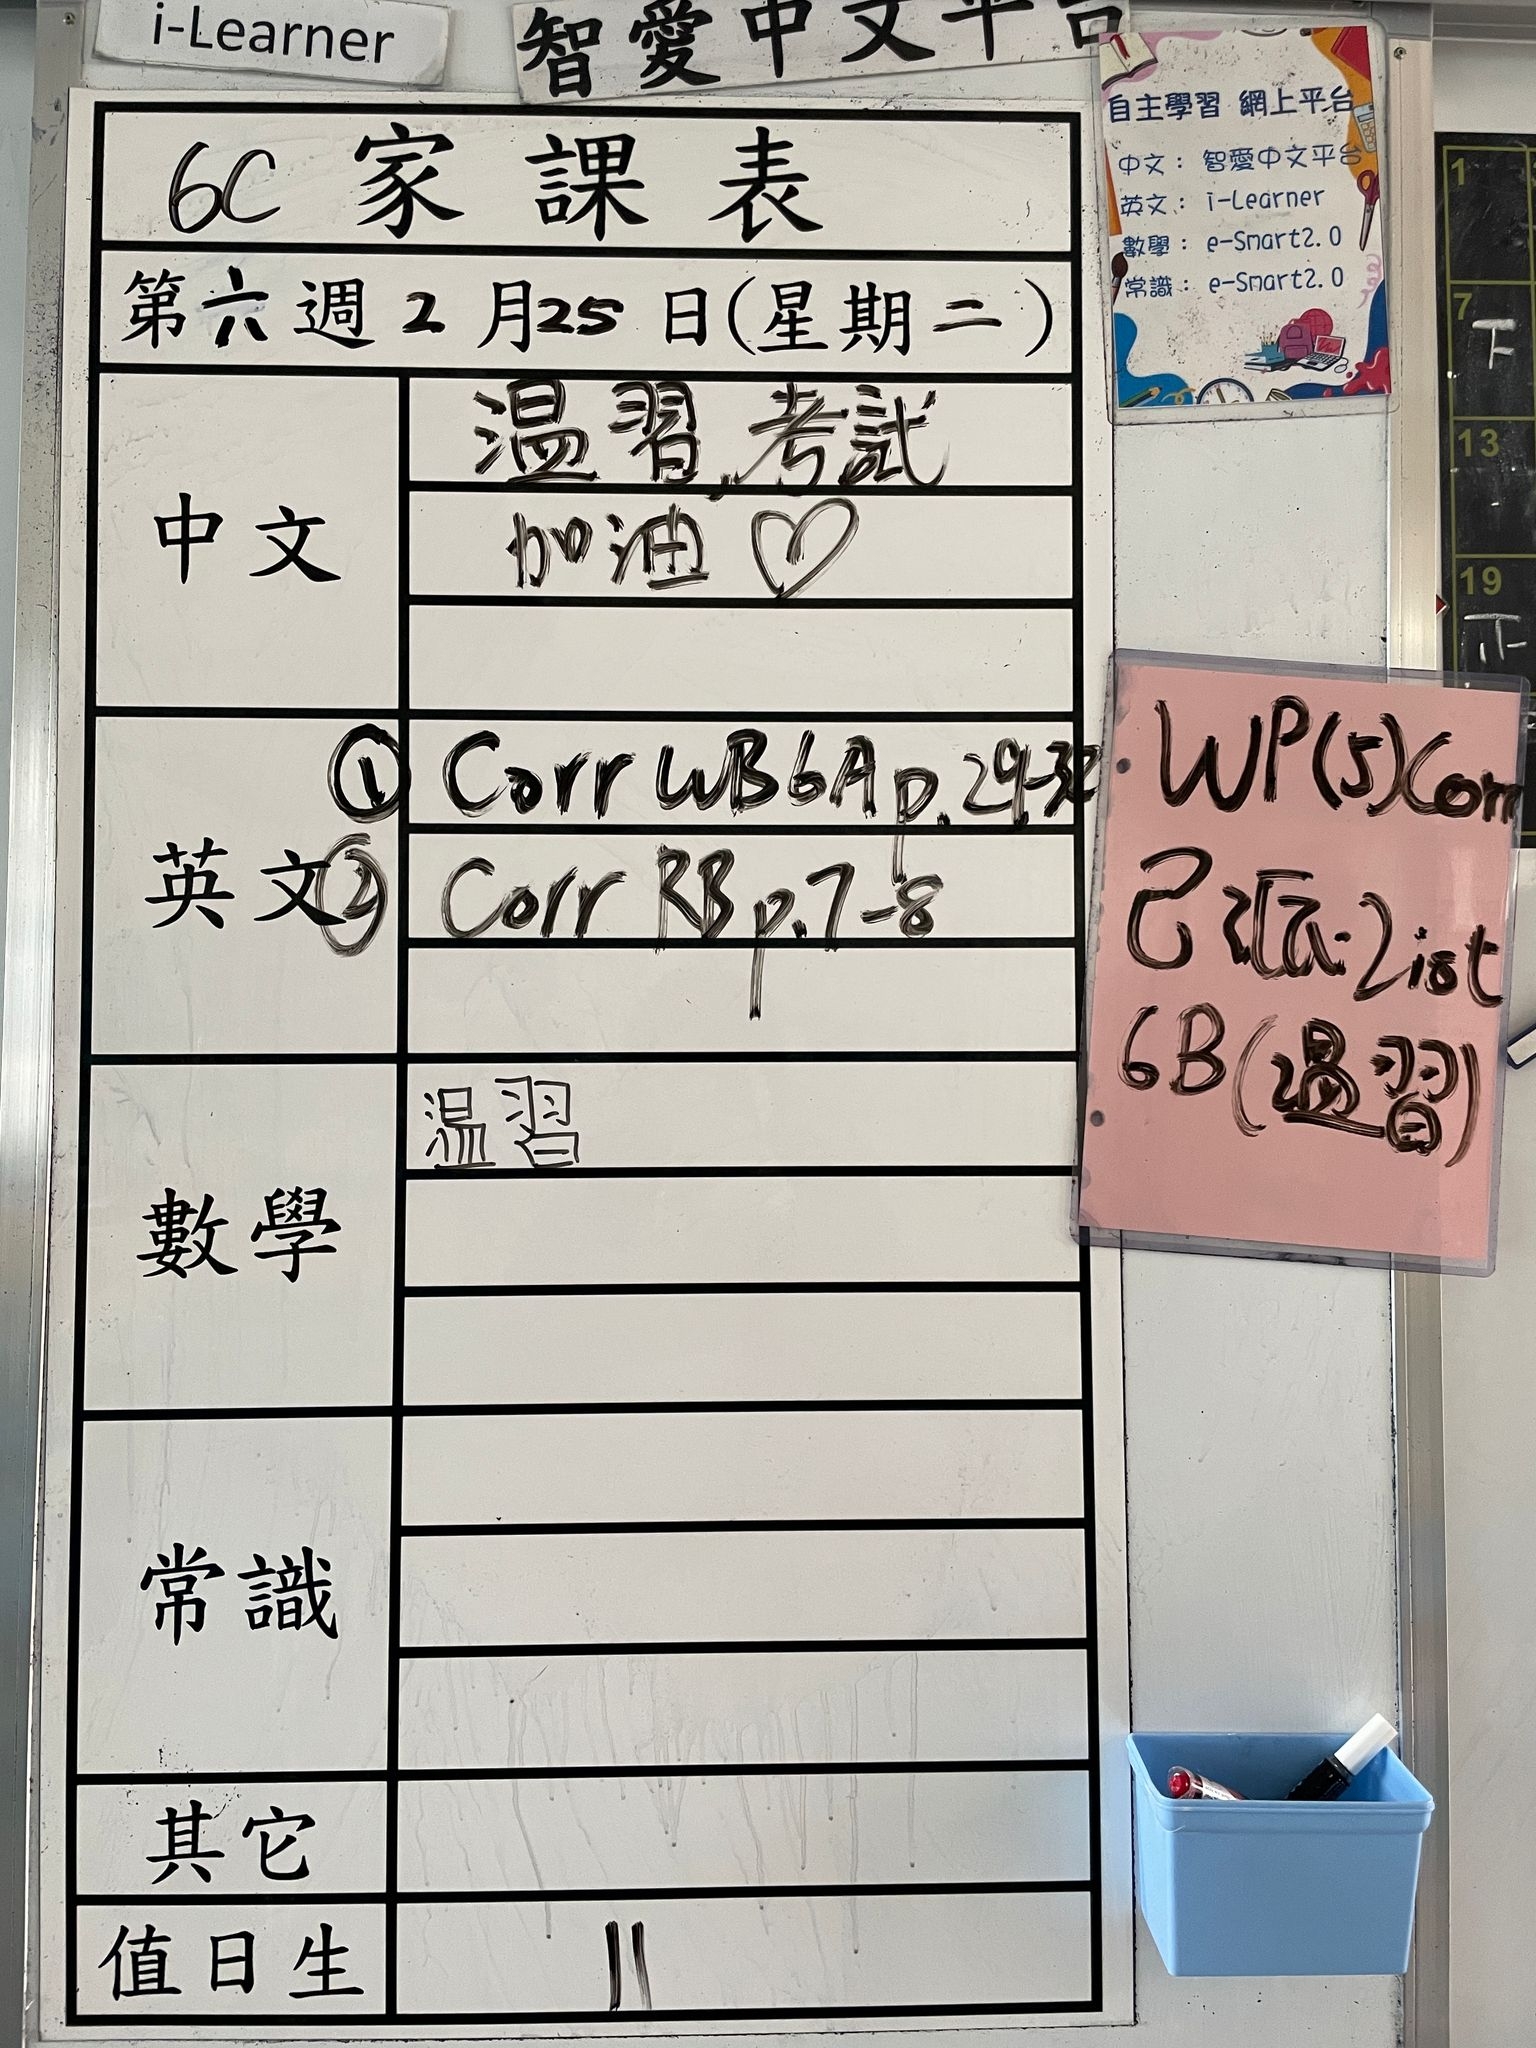 i-Learner
智愛中文平台
自主學習 網上平台
中文：智愛中文平台
英文：i-Learner
數學：e-Smart2.0
常識：e-Smart2.0
6C 家課表
第六週2月25日(星期二)
中文
温習,考試
加油♡
英文
① Corr WB6A p.29-32
② Corr RB p.7-8
WP(5)Corr
已派.List
6B(温習)
數學
温習
常識
其它
值日生
11
1
7
下
13
19